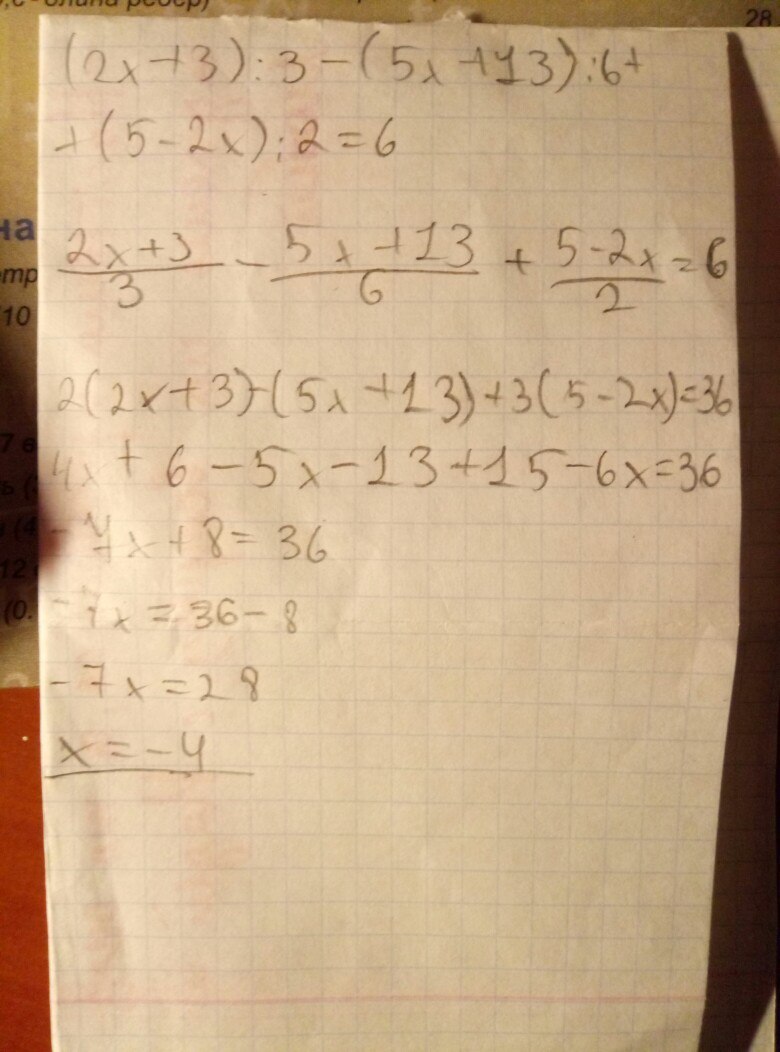 28
(2x+3):3-(5x+13):6+
+(5-2x):2=6
на
\frac{2x+3}{3} - \frac{5x+13}{6} + \frac{5-2x}{2} = 6
10
2(2x+3)-(5x+13)+3(5-2x)=36
4x+6-5x-13+15-6x=36
-7x+8=36
-7x=36-8
-7x=28
x=-4